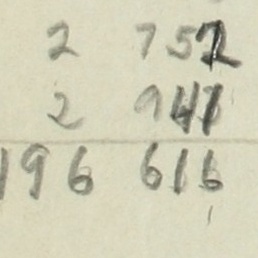 2 752
2 941
196 616